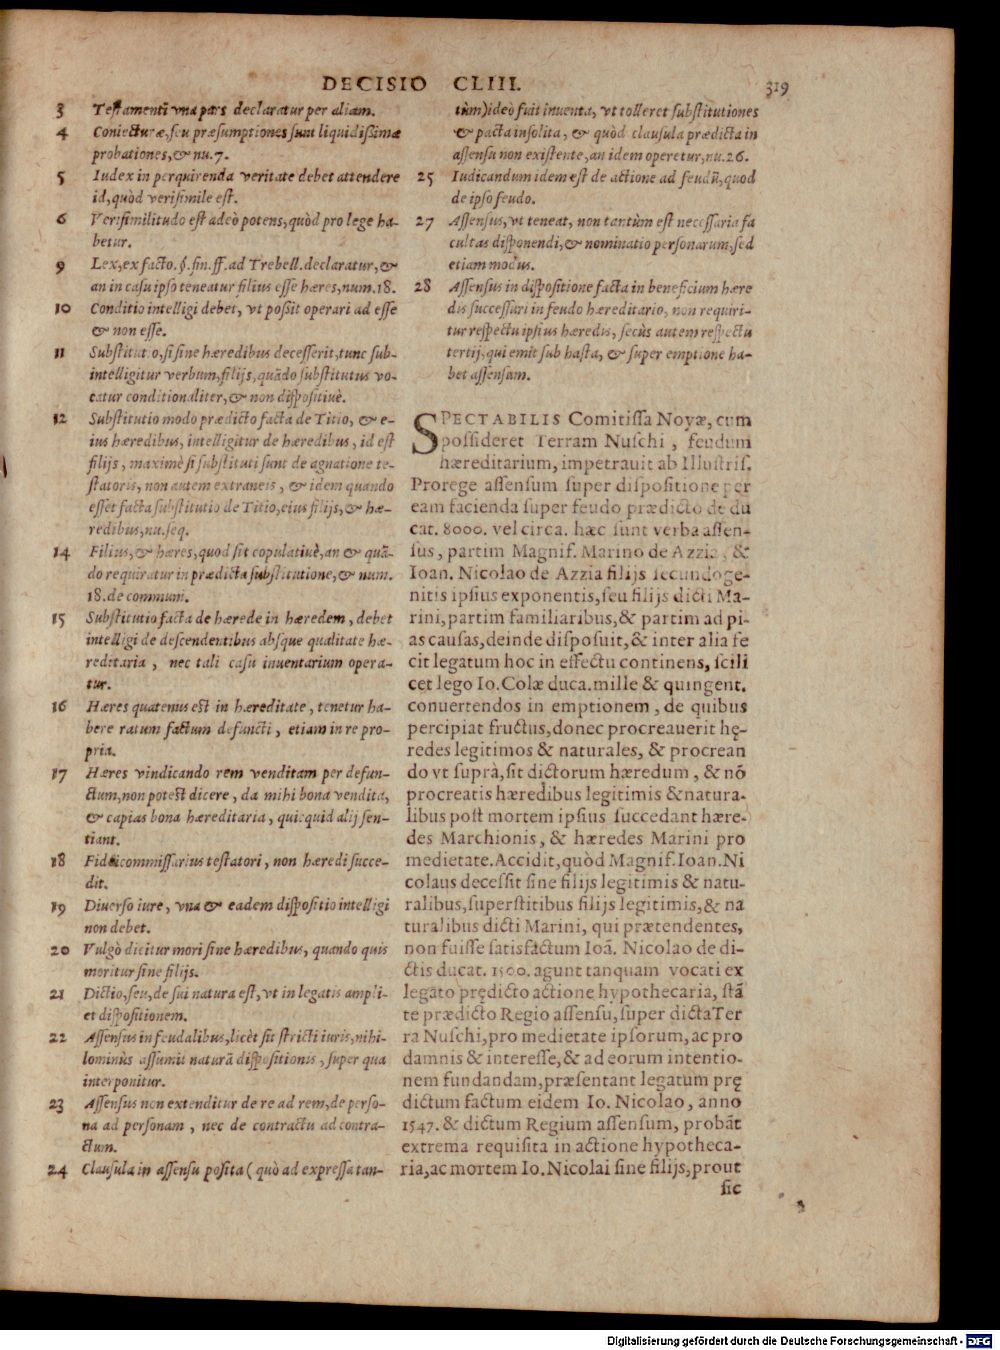 DECISIO CLIII. 319
3 Testamenti vna pars declaratur per aliam.
4 Coniecturæ, seu præsumptiones sunt liquidissimæ
probationes, & nu. 7.
5 Iudex in perquirenda veritate debet attendere
id, quòd verisimile est.
6 Verisimilitudo est adeò potens, quòd pro lege ha-
betur.
9 Lex, ex facto. §. fin. ff. ad Trebell. declaratur, &
an in casu ipso teneatur filius esse hæres, num. 18.
10 Conditio intelligi debet, vt possit operari ad esse
& non esse.
11 Substitutio, si sine hæredibus decesserit, tunc sub-
intelligitur verbum, filijs, quãdo substitutus vo-
catur conditionaliter, & non dispositiuè.
12 Substitutio modo prædicto facta de Titio, & e-
ius hæredibus, intelligitur de hæredibus, id est
filijs, maximè si substituti sunt de agnatione te-
statoris, non autem extraneis, & idem quando
esset facta substitutio de Titio, eius filijs, & hæ-
redibus, nu. seq.
14 Filius, & hæres, quod sit copulatiuè, an & quã-
do requiratur in prædicta substitutione, & num.
18. de communi.
15 Substitutio facta de hærede in hæredem, debet
intelligi de descendentibus absque qualitate hæ-
reditaria, nec tali casu inuentarium opera-
tur.
16 Hæres quatenus est in hæreditate, tenetur ha-
bere ratum factum defuncti, etiam in re pro-
pria.
17 Hæres vindicando rem venditam per defun-
ctum, non potest dicere, da mihi bona vendita,
& capias bona hæreditaria, quicquid alij sen-
tiant.
18 Fideicommissarius testatori, non hæredi succe-
dit.
19 Diuerso iure, vna & eadem dispositio intelligi
non debet.
20 Vulgò dicitur mori sine hæredibus, quando quis
moritur sine filijs.
21 Dictio, seu, de sui natura est, vt in legatis ampli-
et dispositionem.
22 Assensus in feudalibus, licèt sit stricti iuris, nihi-
lominùs assumit naturã dispositionis, super qua
interponitur.
23 Assensus non extenditur de re ad rem, de perso-
na ad personam, nec de contractu ad contra-
ctum.
24 Clausula in assensu posita (quò ad expressa tan-
tùm) ideò fuit inuenta, vt tolleret substitutiones
& pacta insolita, & quòd clausula prædicta in
assensu non existente, an idem operetur, nu. 26.
25 Iudicandum idem est de actione ad feudũ, quod
de ipso feudo.
27 Assensus, vt teneat, non tantùm est necessaria fa
cultas disponendi, & nominatio personarum, sed
etiam modus.
28 Assensus in dispositione facta in beneficium hære
dis successari in feudo hæreditario, non requiri-
tur respectu ipsius hæredis, secùs autem respectu
tertij, qui emit sub hasta, & super emptione ha-
bet assensam.
SPECTABILIS Comitissa Noyæ, cum
possideret Terram Nuschi, feudum
hæreditarium, impetrauit ab Illustris.
Prorege assensum super dispositione per
eam facienda super feudo prædicto de du
cat. 8000. vel circa. hæc sunt verba assen-
sus, partim Magnif. Marino de Azzia, &
Ioan. Nicolao de Azzia filijs secundoge-
nitis ipsius exponentis, seu filijs dicti Ma-
rini, partim familiaribus, & partim ad pi-
as causas, deinde disposuit, & inter alia fe
cit legatum hoc in effectu continens, scili
cet lego Io. Colæ duca. mille & quingent.
conuertendos in emptionem, de quibus
percipiat fructus, donec procreauerit hę-
redes legitimos & naturales, & procrean
do vt suprà, sit dictorum hæredum, & nõ
procreatis hæredibus legitimis & natura-
libus post mortem ipsius succedant hære-
des Marchionis, & hæredes Marini pro
medietate. Accidit, quòd Magnif. Ioan. Ni
colaus decessit sine filijs legitimis & natu-
ralibus, superstitibus filijs legitimis, & na
turalibus dicti Marini, qui prætendentes,
non fuisse satisfactum Ioã. Nicolao de di-
ctis ducat. 1500. agunt tanquam vocati ex
legato prędicto actione hypothecaria, stã
te prædicto Regio assensu, super dicta Ter
ra Nuschi, pro medietate ipsorum, ac pro
damnis & interesse, & ad eorum intentio-
nem fundandam, præsentant legatum prę
dictum factum eidem Io. Nicolao, anno
1547. & dictum Regium assensum, probãt
extrema requisita in actione hypotheca-
ria, ac mortem Io. Nicolai sine filijs, prout
sic
Digitalisierung gefördert durch die Deutsche Forschungsgemeinschaft - DFG